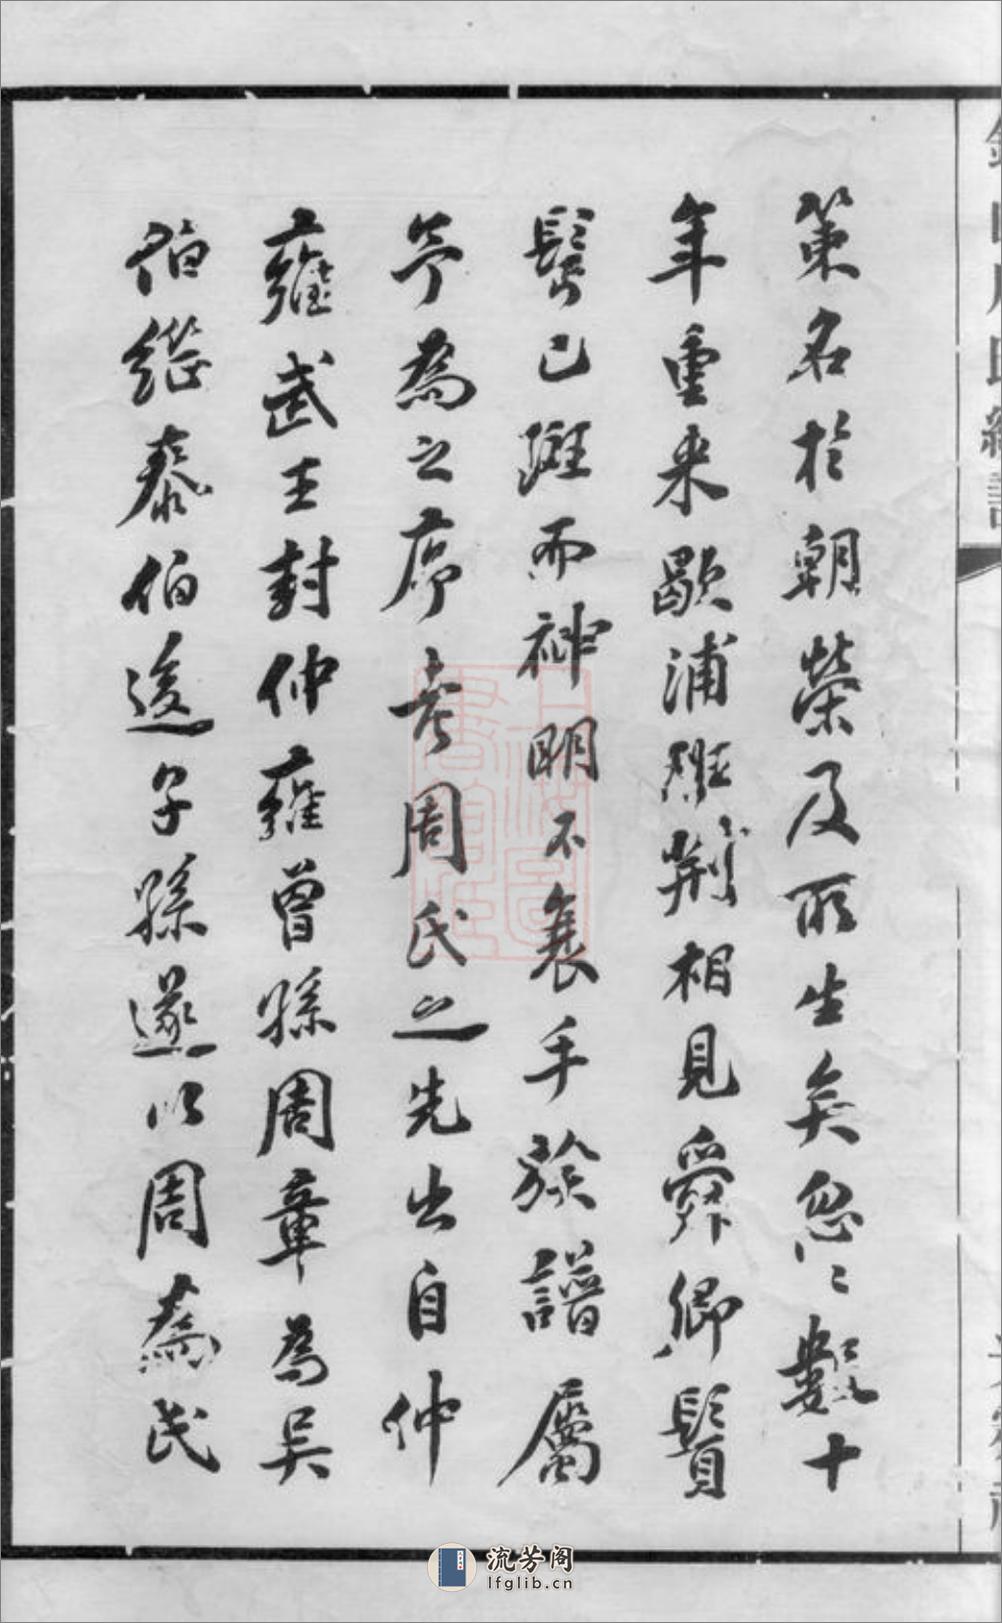 策名於朝榮及所生矣忽忽數十
年重来歇浦班荆相見舜卿鬢
髮已斑而神明不衰手族譜屬
予為之序考周氏之先出自仲
雍武王封仲雍曾孫周章為吳
伯繼泰伯後子孫遂以周為氏
流芳阁
lfglib.cn